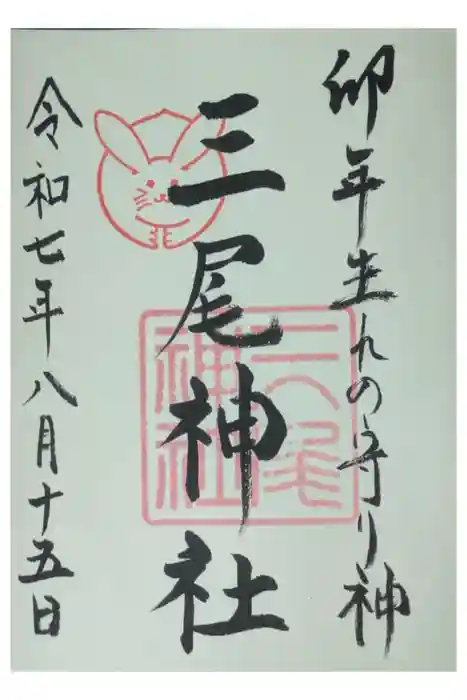 卯年生れの守り神
三尾神社
三尾神社
令和七年八月十五日